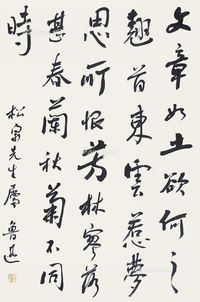 文章如土欲何之
翹首東雲惹夢
思所恨芳林寥落
甚春蘭秋菊不同
時
松泉先生屬
魯迅